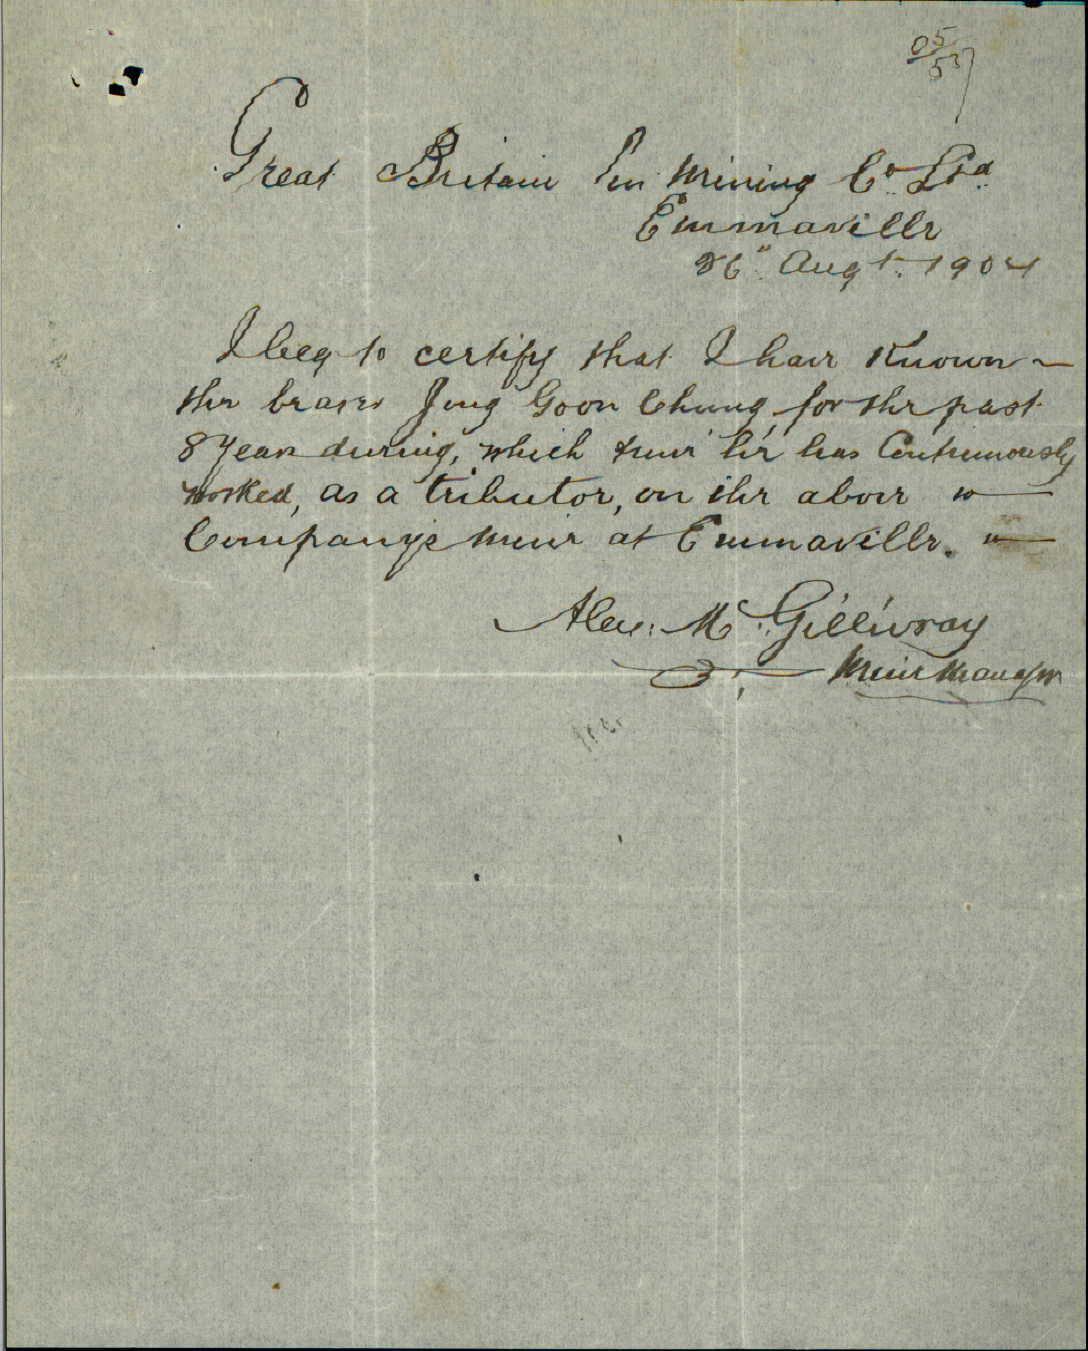 05/57
Great Britain Tin Mining Co. Ltd.
Emmaville
26" Augt. 1904
I beg to certify that I have known
the bearer Jung Goon Chung, for the past
8 Years during, which time he has Continuously
worked, as a tributor, on the above
Company's mine at Emmaville.
Alex: McGillivray
Mine Manager